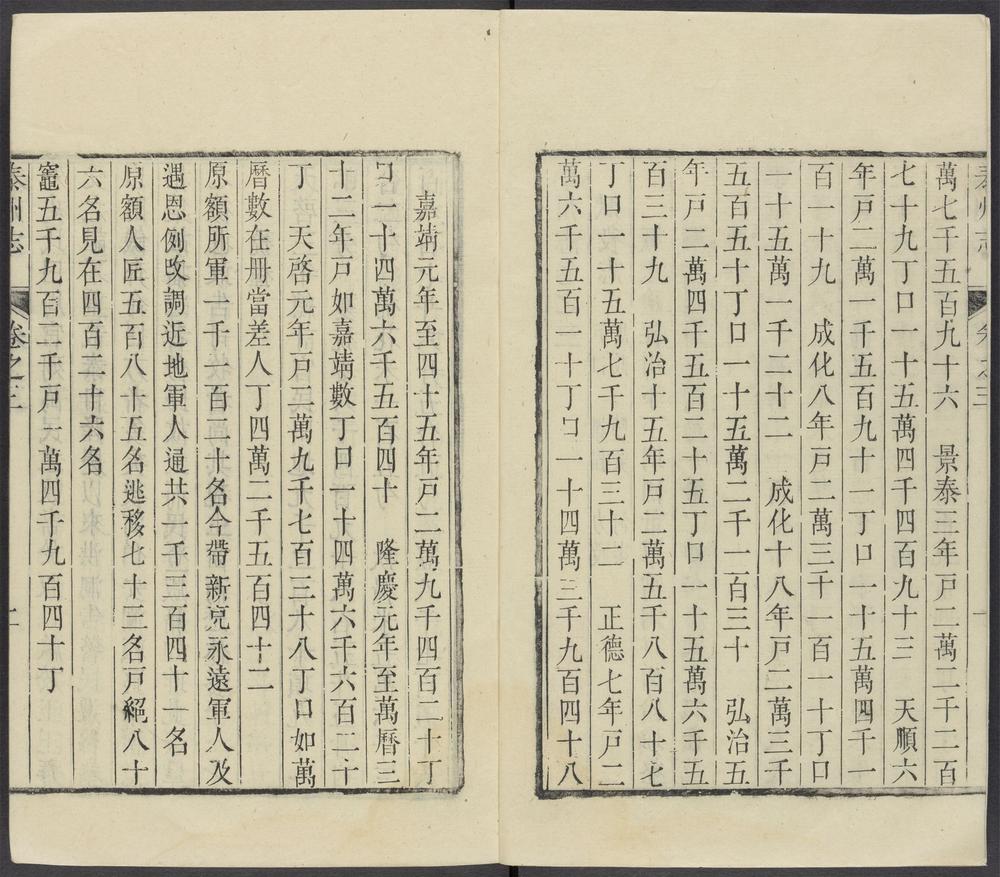 泰州志 卷之三
萬七千五百九十六 景泰三年戸二萬二千二百
七十九丁口一十五萬四千四百九十三 天順六
年戸二萬一千五百九十一丁口一十五萬四千一
百一十九 成化八年戸二萬三千一百一十丁口
一十五萬一千二十二 成化十八年戸二萬三千
五百五十丁口一十五萬二千一百三十 弘治五
年戸二萬四千五百二十五丁口一十五萬六千五
百三十九 弘治十五年戸二萬五千八百八十七
丁口一十五萬七千九百三十二 正德七年戸二
萬六千五百一十丁口一十四萬三千九百四十八
嘉靖元年至四十五年戸二萬九千四百二十丁
口一十四萬六千五百四十 隆慶元年至萬曆三
十二年戸如嘉靖數丁口一十四萬六千六百二十
丁 天啓元年戸二萬九千七百三十八丁口如萬
曆數在冊當差人丁四萬二千五百四十二
原額所軍一千一百二十名今帶新充永遠軍人及
遇恩例改調近地軍人通共一千三百四十一名
原額人匠五百八十五名逃移七十三名戸絕八十
六名見在四百二十六名
竈五千九百二千戸一萬四千九百四十丁
泰州志 卷之三 二